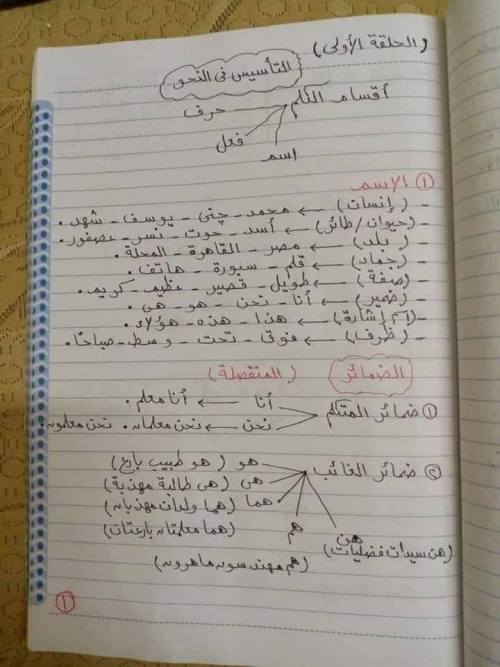 (الحلقة الأولى)
التأسيس فى النحو
أقسام الكلم
حرف
فعل
اسم
① الإسم
- (إنسان) ← محمد - چنى - يوسف - شهد.
- (حيوان/طائر) ← أسد - حوت - نسر - عصفور.
- (بلد) ← مصر - القاهرة - المحلة.
- (جماد) ← قلم - سبورة - هاتف.
- (صفة) ← طويل - قصير - عظيم - كريم.
- (ضمير) ← أنا - نحن - هو - هى.
- (اسم إشارة) ← هذا - هذه - هؤلاء.
- (ظرف) ← فوق - تحت - وسط - صباحًا.
الضمائر (المنفصلة)
① ضمائر المتكلم
أنا ← أنا معلم.
نحن ← نحن معلمان. نحن معلمون.
② ضمائر الغائب
هو (هو طبيب بارع)
هى (هى طالبة مهذبة)
هما (هما ولدان مهذبان)
(هما معلمتان بارعتان)
هم
هن
(هن سيدات فضليات)
(هم مهندسون ماهرون)
①